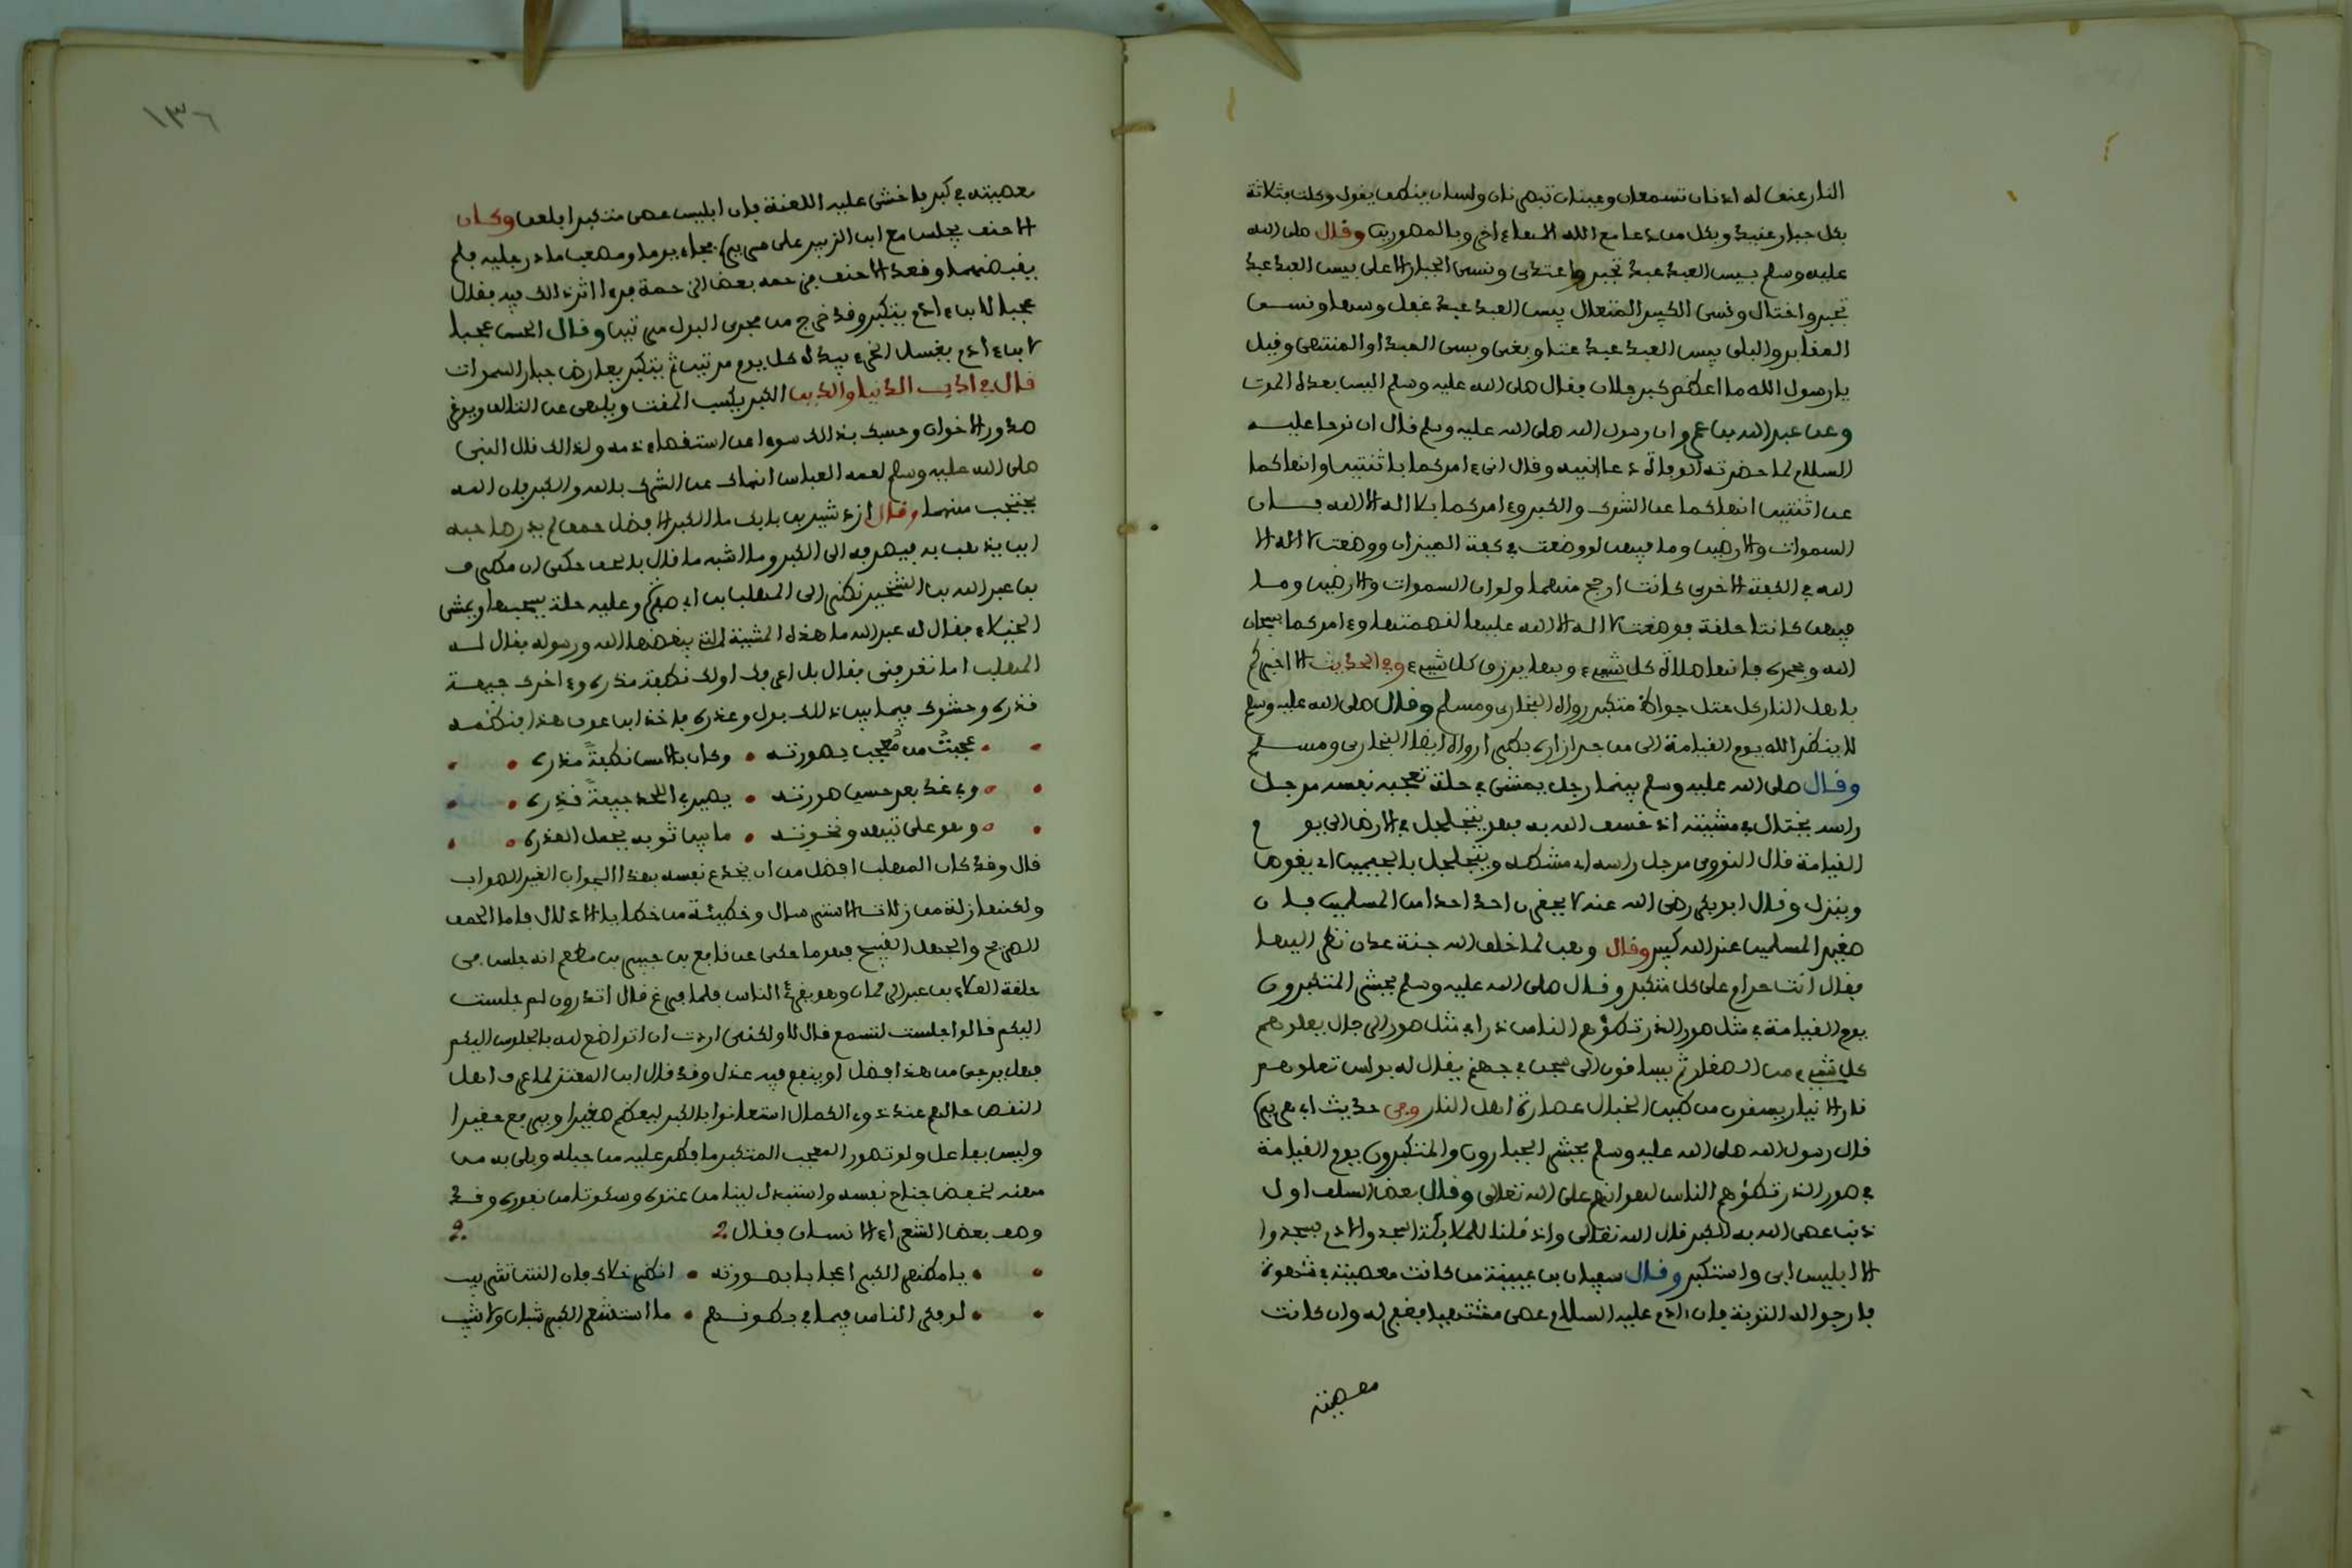 النار عنق له اذنان تسمعان وعينان تبصران ولسان ينطق يقول وكلت بثلاثة
بكل جبار عنيد وبكل من دعا مع الله الها ءاخر وبالمصورين وقال صلى الله
عليه وسلم بيس العبد عبد تجبر واعتدى ونسى الجبار الاعلى بيس العبد عبد
تجبر واختال ونسى الكبير المتعال بيس العبد عبد غفل وسها ونسى
المقابر والبلى بيس العبد عبد عتا وبغى ونسى المبدا والمنتهى وقيل
يا رسول الله ما اعظم كبر فلان فقال صلى الله عليه وسلم اليس بعده الموت
وعن عبد الله بن عمرو ان رسول الله صلى الله عليه وسلم قال ان نوحا عليه
السلام لما حضرته الوفاة دعا ابنيه وقال انى ءامركما باثنتين وانهاكما
عن اثنتين انهاكما عن الشرك والكبر وءامركما بلا اله الا الله فان
السموات والارضين وما فيهن لو وضعت في كفة الميزان ووضعت لا اله الا
الله في الكفة الاخرى كانت ارجح منهما ولو ان السموات والارضين وما
فيهن كانتا حلقة فوضعت لا اله الا الله عليها لقصمتها وءامركما بسبحان
الله وبحمده فانها صلاة كل شيء وبها يرزق كل شيء وفي الحديث الا اخبركم
باهل النار كل عتل جواظ متكبر رواه البخارى ومسلم وقال صلى الله عليه وسلم
لا ينظر الله يوم القيامة الى من جر ازاره بطرا رواه ايضا البخارى ومسلم
وقال صلى الله عليه وسلم بينما رجل يمشى في حلة تعجبه نفسه مرجل
راسه يختال في مشيته اذ خسف الله به فهو يتجلجل في الارض الى يوم
القيامة قال النووى مرجل راسه اى مشطه ويتجلجل بالجيمين اى يغوص
وينزل وقال ابو بكر رضى الله عنه لا يحقرن احد احدا من المسلمين فان
صغير المسلمين عند الله كبير وقال وهب لما خلق الله جنة عدن نظر اليها
فقال انت حرام على كل متكبر وقال صلى الله عليه وسلم يحشر المتكبرون
يوم القيامة في مثل صور الذر تطؤهم الناس ذرا في مثل صور الرجال يعلوهم
كل شيء من الصغار ثم يساقون الى سجن في جهنم يقال له بولس تعلوهم
نار الانيار يسقون من طين الخبال عصارة اهل النار ومن حديث ابى هريرة
قال رسول الله صلى الله عليه وسلم يحشر الجبارون والمتكبرون يوم القيامة
في صور الذر تطؤهم الناس لهوانهم على الله تعالى وقال بعض السلف اول
ذنب عصى الله به الكبر قال الله تعالى واذ قلنا للملايكة اسجدوا لادم فسجدوا
الا ابليس ابى واستكبر وقال سفيان بن عيينة من كانت معصيته في شهوة
فارجوا له التوبة فان ادم عليه السلام عصى مشتهيا فغفر له وان كانت
معصيته
١٣٦
معصيته في كبر فاخشى عليه اللعنة فان ابليس عصى متكبرا فلعن وكان
الاحنف يجلس مع ابن الزبير على سريره فجاء يوما ومصعب ماد رجليه فلم
يقبضهما وقعد الاحنف فزحمه بعض الزحمة فرءا اثر ذالك فيه فقال
عجبا لابن ءادم يتكبر وقد خرج من مجرى البول مرتين وقال الحسن عجبا
لابن ءادم يغسل الخرء بيده كل يوم مرتين ثم يتكبر يعارض جبار السموات
قال في ادب الدنيا والدين الكبر يكسب المقت ويلهى عن التالف ويوغر
صدور الاخوان وحسبك بذالك سوءا عن استقصاء ذمه ولذالك قال النبى
صلى الله عليه وسلم لعمه العباس انهاك عن الشرك بالله والكبر فان الله
يحتجب منهما وقال ازدشير بن بابك ما الكبر الا فضل حمق لم يدر صاحبه
اين يذهب به فيصرفه الى الكبر وما اشبه ما قال بالحق حكى ان مطرف
بن عبد الله بن الشخير نظر الى المهلب بن ابى صفرة وعليه حلة يسحبها ويمشى
الخيلاء فقال له عبد الله ما هذه المشية التى يبغضها الله ورسوله فقال له
المهلب اما تعرفنى فقال بل اعرفك اولك نطفة مذرة وءاخرك جيفة
قذرة وحشوك فيما بين ذلك بول وعذرة فاخذ ابن عوف هذا فنظمه
عجبت من معجب بصورته • وكان بالامس نطفة مذرة
وفي غد بعد حسن صورته • يصير في اللحد جيفة قذرة
وهو على تيهه ونخوته • ما بين ثوبيه يحمل العذرة
قال وقد كان المهلب افضل من ان يخدع نفسه بهذا الجواب الغير الصواب
ولكنها زلة من زلات الاسترسال وخطيئة من خطايا الادلال فاما الحمق
الصريح والجهل القبيح فهو ما حكى عن نافع بن جبير بن مطعم انه جلس في
حلقة العلاء بن عبد الرحمان وهو يقرئ الناس فلما فرغ قال اتدرون لم جلست
اليكم قالوا جلست لتسمع قال لا ولكنى اردت ان اتواضع لله بالجلوس اليكم
فهل يرجى من هذا فضل او ينفع فيه عذل وقد قال ابن المعتز لما عرف اهل
النقص حالهم عند ذوى الكمال استعانوا بالكبر ليعظم صغيرا ويرفع حقيرا
وليس بفاعل ولو تصور المعجب المتكبر ما فطر عليه من جبلة وبلى به من
مهنة لخفض جناح نفسه واستبدل لينا من عتوه وسكوتا من نفوره وقد
وصف بعض الشعراء الانسان فقال
يا مظهر الكبر اعجابا بصورته • انظر خلاك فان النتن تثريب
لو فكر الناس فيما في بطونهم • ما استشعر الكبر شبان ولا شيب